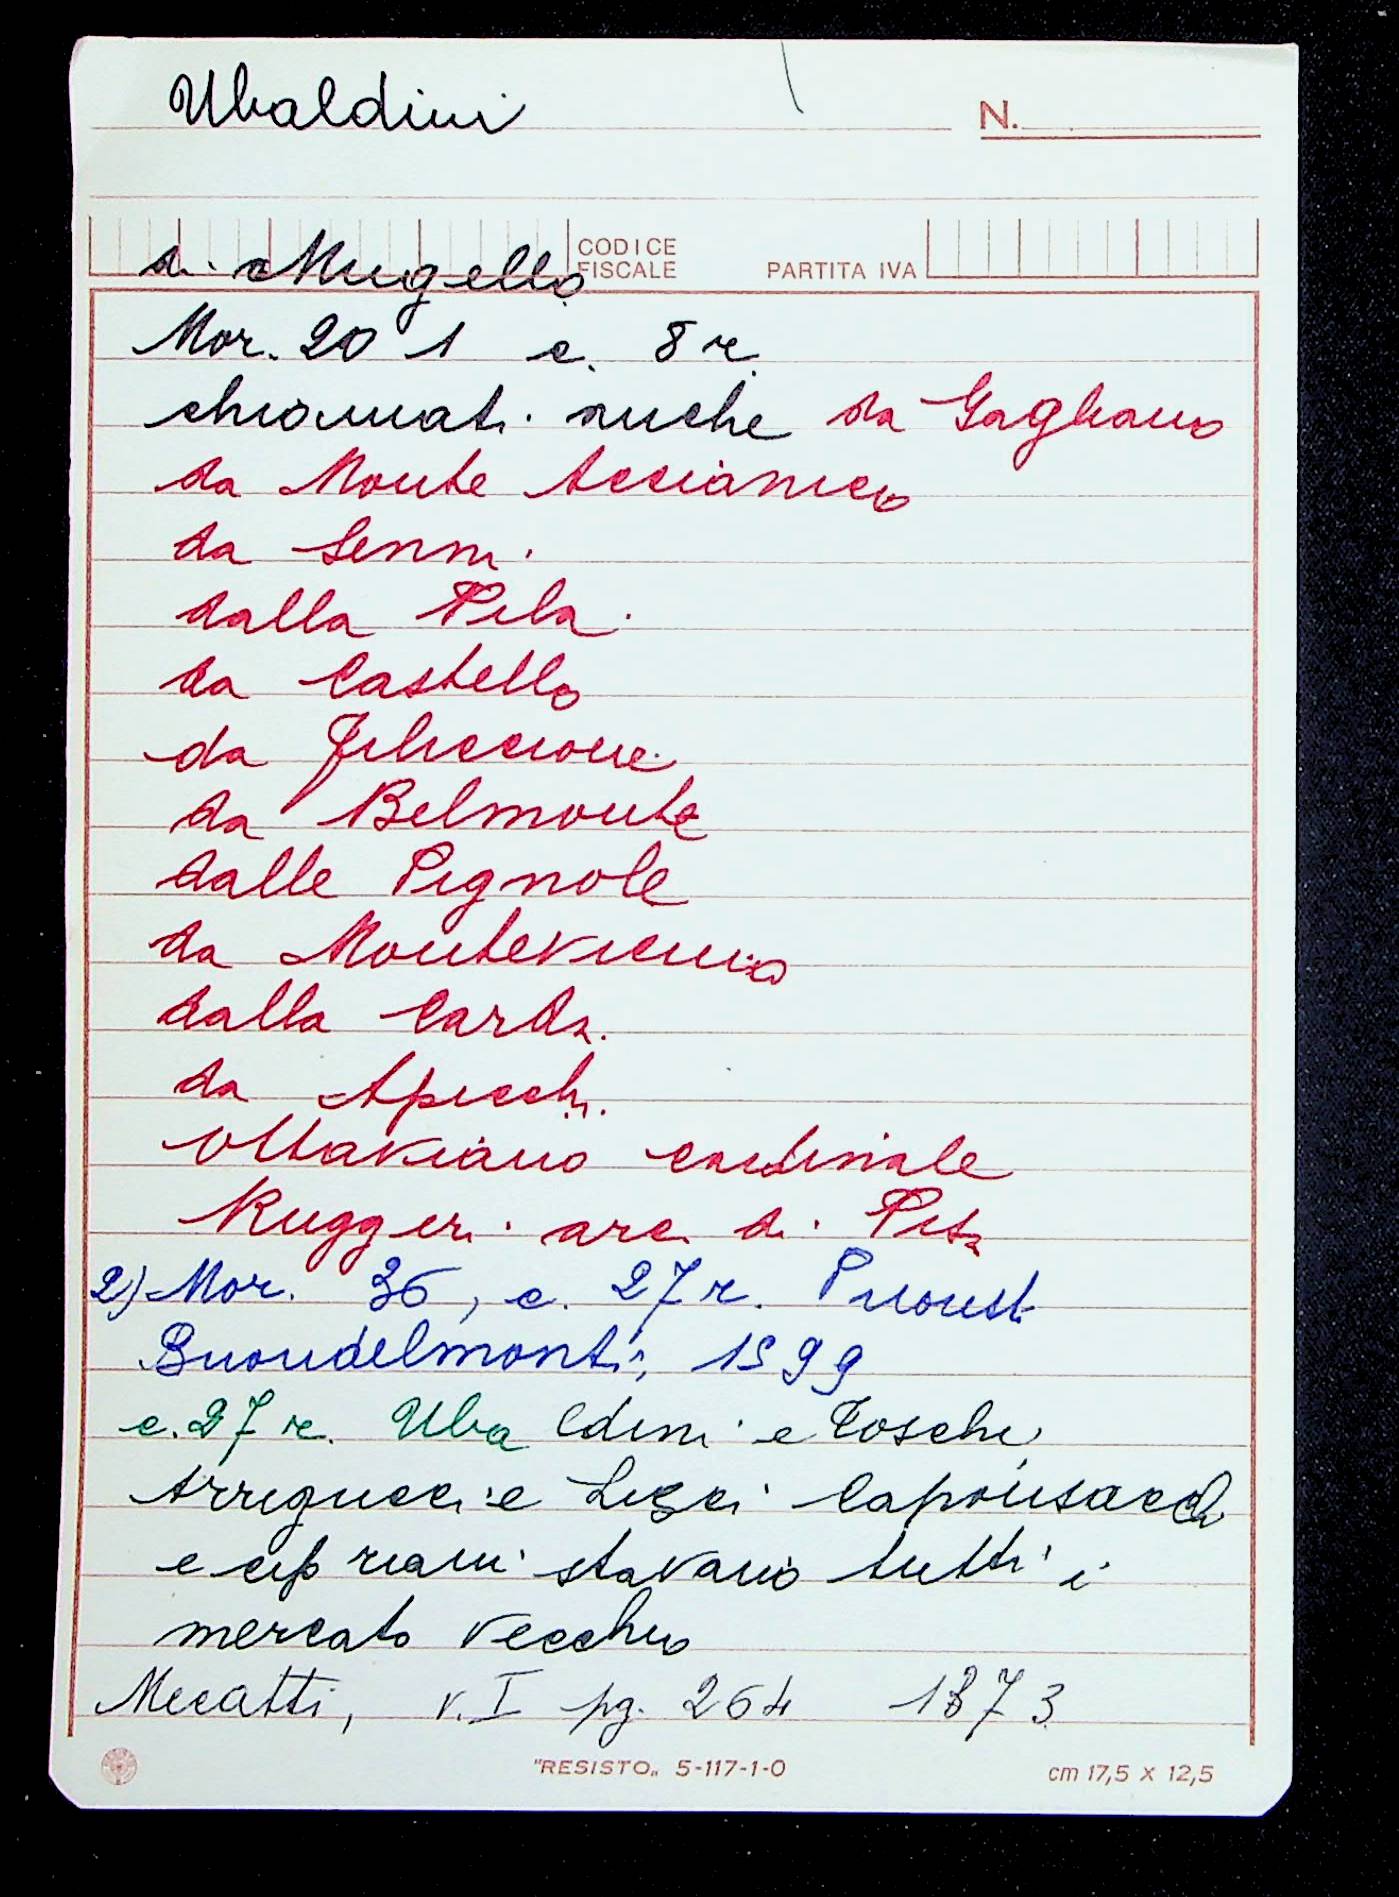 Ubaldini
N.
di Mugello
CODICE FISCALE
PARTITA IVA
Mor. 201 c. 8r.
chiamati anche da Gagliano
da Monte Accianico
da Senni
dalla Pila
da Castello
da Feliccione
da Belmonte
dalle Pignole
da Montevicino
dalla Carda
da Apecchi
Ottaviano cardinale
Ruggeri arc. di Pisa
2) Mor. 36, c. 27r. Priorist.
Buondelmonti, 1599
c. 27r. Ubaldini e Toschi
Arrigucci e Lisci Caponsacchi
e cipriani stavano tutti i
mercato vecchio
Mecatti, v. I pg. 264 1373
"RESISTO„ 5-117-1-0
cm 17,5 x 12,5